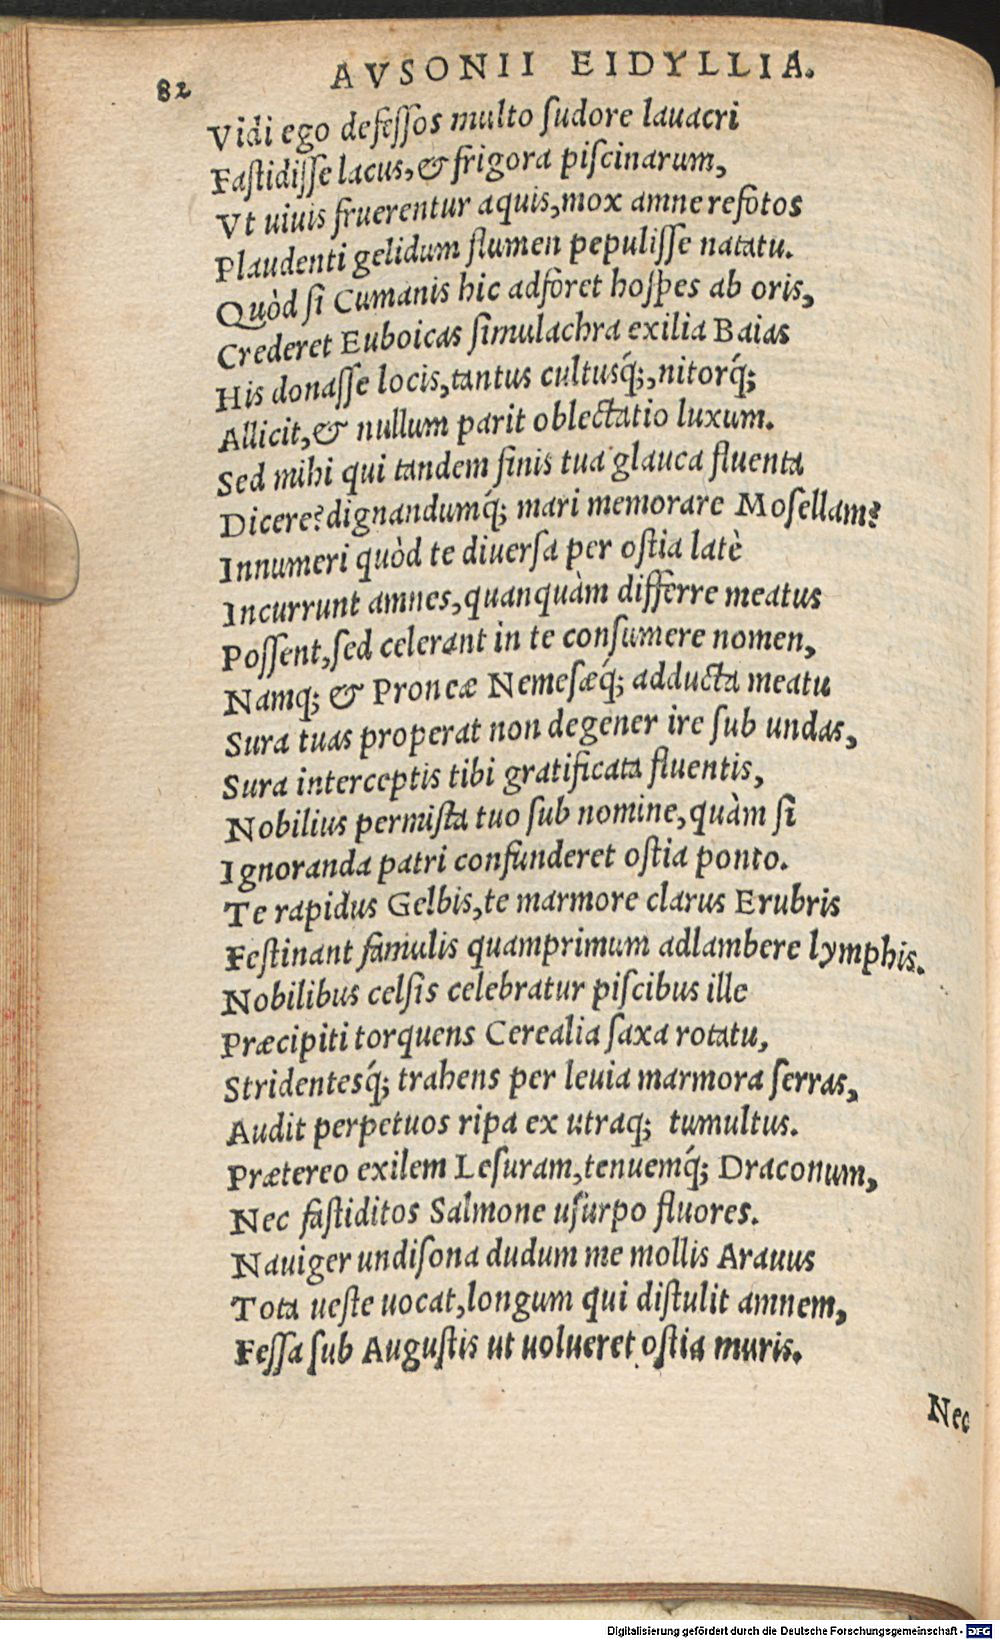 82 AVSONII EIDYLLIA.
Vidi ego defeſſos multo ſudore lauacri
Faſtidiſſe lacus, & frigora piſcinarum,
Vt uiuis fruerentur aquis, mox amne refotos
Plaudenti gelidum flumen pepuliſſe natatu.
Quòd ſi Cumanis hic adforet hoſpes ab oris,
Crederet Euboicas ſimulachra exilia Baias
His donaſſe locis, tantus cultusq́;, nitorq́;
Allicit, & nullum parit oblectatio luxum.
Sed mihi qui tandem finis tua glauca fluenta
Dicere? dignandumq́; mari memorare Moſellam?
Innumeri quòd te diuerſa per oſtia latè
Incurrunt amnes, quanquàm differre meatus
Poſſent, ſed celerant in te conſumere nomen,
Namq; & Proneæ Nemeſæq́; adducta meatu
Sura tuas properat non degener ire ſub undas,
Sura interceptis tibi gratificata fluentis,
Nobilius permiſta tuo ſub nomine, quàm ſi
Ignoranda patri confunderet oſtia ponto.
Te rapidus Gelbis, te marmore clarus Erubris
Feſtinant famulis quamprimum adlambere lymphis.
Nobilibus celſis celebratur piſcibus ille
Præcipiti torquens Cerealia ſaxa rotatu,
Stridentesq́; trahens per leuia marmora ſerras,
Audit perpetuos ripa ex utraq; tumultus.
Prætereo exilem Leſuram, tenuemq́; Draconum,
Nec faſtiditos Salmone uſurpo fluores.
Nauiger undiſona dudum me mollis Arauus
Tota ueſte uocat, longum qui diſtulit amnem,
Feſſa ſub Auguſtis ut uolueret oſtia muris.
Nec
Digitalisierung gefördert durch die Deutsche Forschungsgemeinschaft - DFG